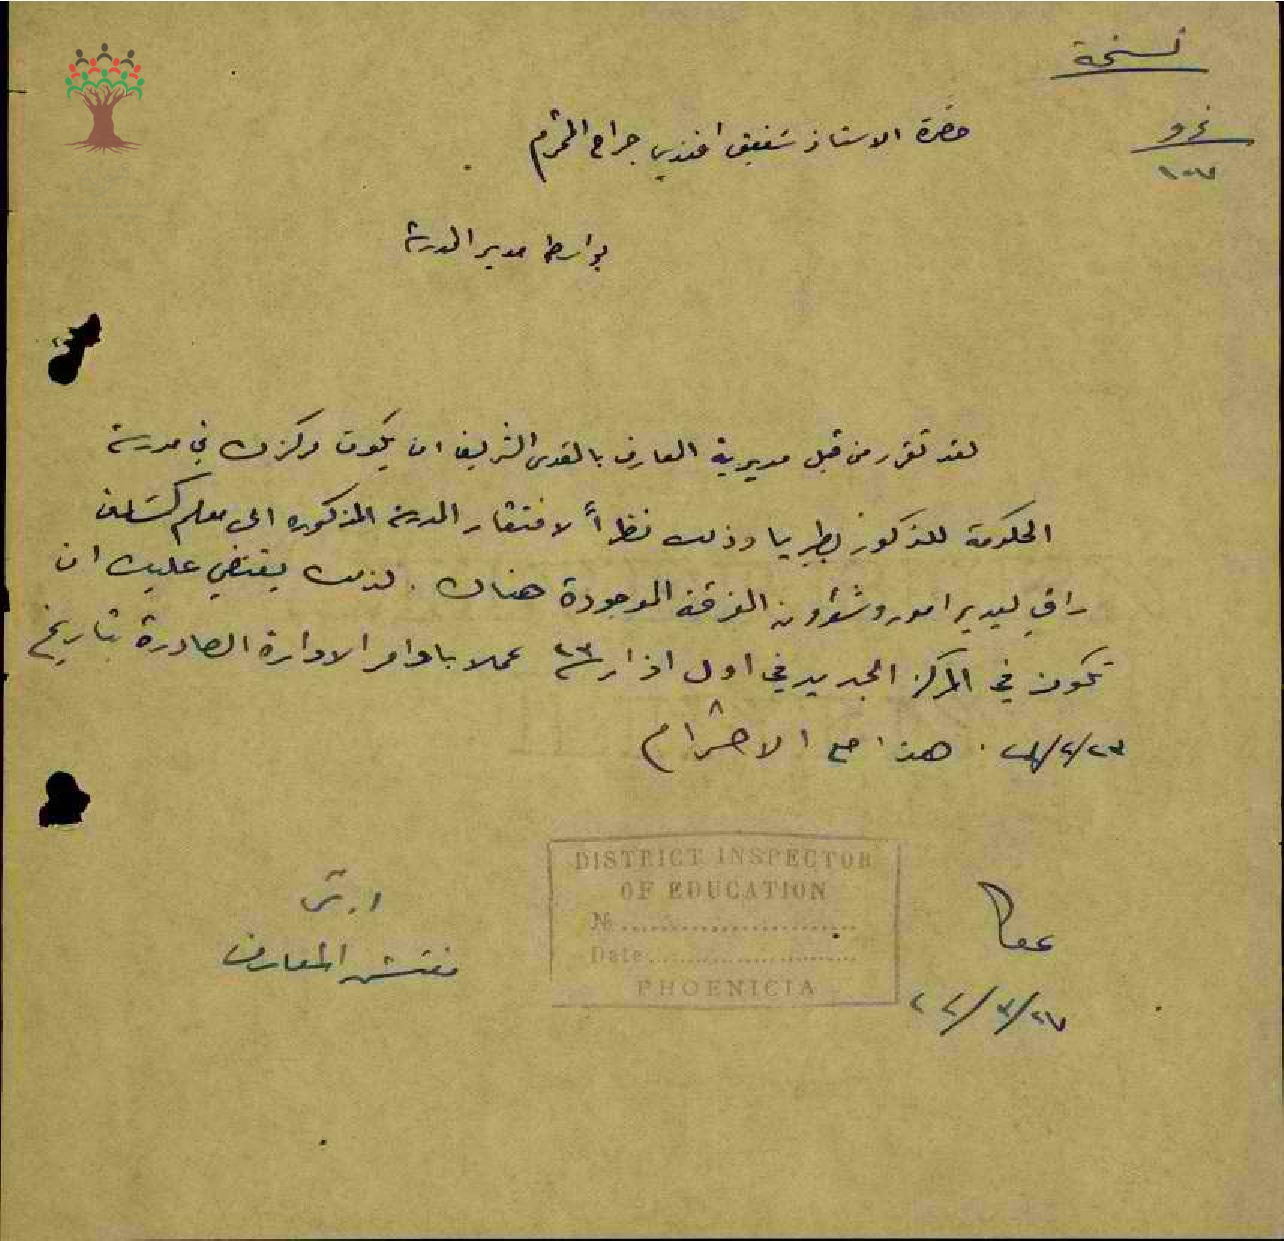 نسخة
حضرة الاستاذ شفيق افندي جراح المحترم
بواسطة مدير المدرسة
لقد تقرر من قبل مديرية المعارف بالقدس الشريف ان يكون مركزك في مدرسة
الحكومة للذكور بطبريا وذلك نظراً لافتقار المدرسة المذكورة الى معلم كشاف
راقي ليدير امور وشؤون الفرقة الموجودة هناك . لذلك يقتضي عليك ان
تكون في المركز الجديد في اول اذار عملا باوامر الادارة الصادرة بتاريخ
هذا مع الاحترام
DISTRICT INSPECTOR
OF EDUCATION
№
Date
PHOENICIA
عكا
مفتش المعارف